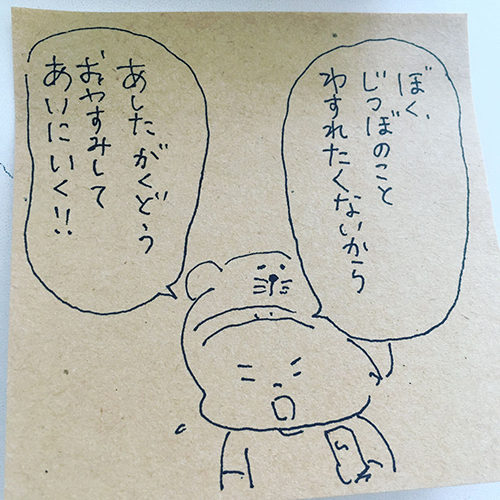 ぼく、
じつぼのこと
わすれたくないから
あした がくどう
おやすみして
あいにいく!!